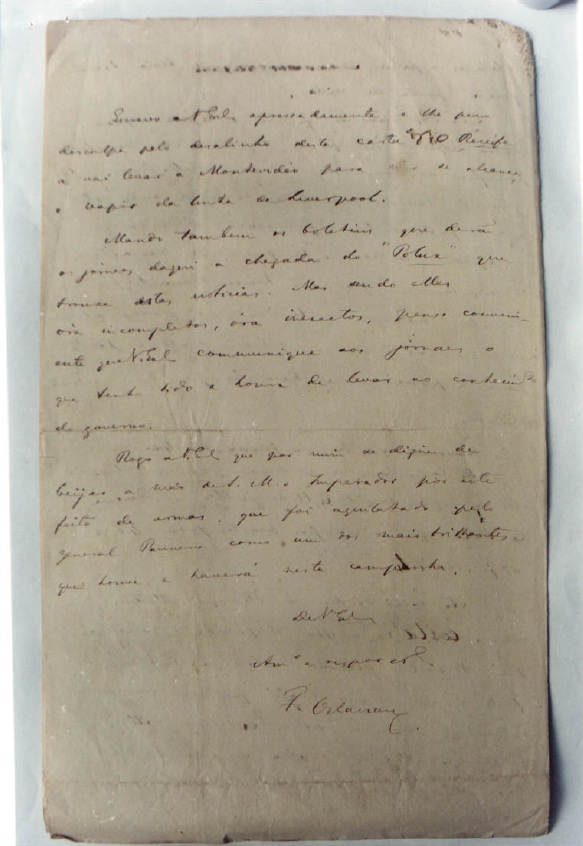 Escrevo a V. Ex. apressadamente, e lhe peço
desculpe pelo desalinho desta carta O Recife
a vai levar a Montevidéo para se alcançar
o vapor da linha de Liverpool.
Mando tambem os boletins que derão
os jornaes daqui a chegada do "Polux" que
trouxe estas noticias. Mas sendo elles
óra incompletos, óra inexactos, penso conveni-
ente que V. Ex. communique aos jornaes o
que tenho tido a honra de levar ao conhecimto
do governo.
Rogo a V. Ex. que por mim se digne de
beijar a mão de S. M. o Imperador por este
feito de armas, que foi aquilatado pelo
general Paunero como um dos mais brilhantes
que houve e haverá nesta campanha.
De V. Ex.
Amo e
F.